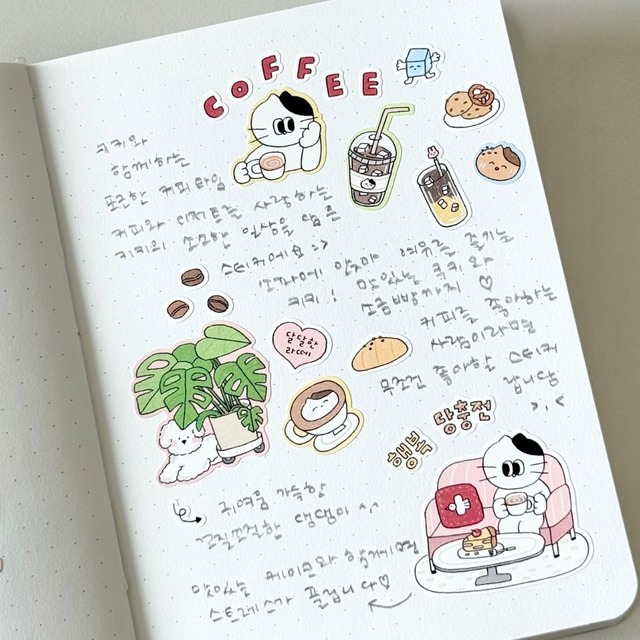 COFFEE
키키와
함께하는
포근한 커피타임
커피와 디저트를 사랑하는
키키의 소소한 일상을 담은
스티커에요:>
소파에 앉아 여유를 즐기는
키키! 맛있는 쿠키와
소금빵까지 ♡
커피를 좋아하는
사람이라면
무조건 좋아할 스티커
입니당
>.<
달달한
라떼
당충전
행복
귀여움 가득한
꼬질꼬질한 댕댕이 ^.^
맛있는 케이크와 함께하면
스트레스가 풀립니다♡